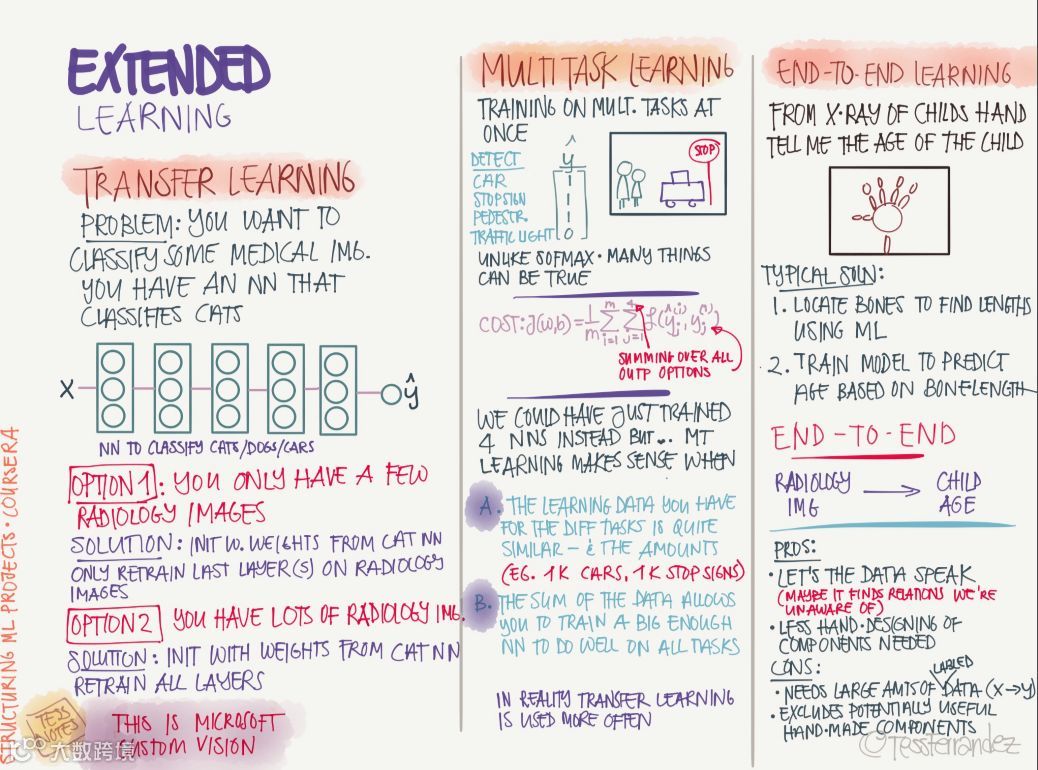 EXTENDED
LEARNING
TRANSFER LEARNING
PROBLEM: YOU WANT TO
CLASSIFY SOME MEDICAL IMG.
YOU HAVE AN NN THAT
CLASSIFIES CATS
X
ŷ
NN TO CLASSIFY CATS/DOGS/CARS
OPTION 1: YOU ONLY HAVE A FEW
RADIOLOGY IMAGES
SOLUTION: INIT W. WEIGHTS FROM CAT NN
ONLY RETRAIN LAST LAYER(S) ON RADIOLOGY
IMAGES
OPTION 2 YOU HAVE LOTS OF RADIOLOGY IMG.
SOLUTION: INIT WITH WEIGHTS FROM CAT NN
RETRAIN ALL LAYERS
THIS IS MICROSOFT
CUSTOM VISION
TESS
NOTES
大数跨境
STRUCTURING ML PROJECTS · COURSERA
MULTITASK LEARNING
TRAINING ON MULT. TASKS AT
ONCE
DETECT
CAR
STOPSIGN
PEDESTR.
TRAFFIC LIGHT
ŷ
STOP
UNLIKE SOFMAX · MANY THINGS
CAN BE TRUE
COST: J(w,b) = 1/m Σ i=1 m Σ j=1 4 L(ŷj(i), yj(i))
SUMMING OVER ALL
OUTP OPTIONS
WE COULD HAVE JUST TRAINED
4 NNS INSTEAD BUT... MT
LEARNING MAKES SENSE WHEN
A. THE LEARNING DATA YOU HAVE
FOR THE DIFF TASKS IS QUITE
SIMILAR – & THE AMOUNTS
(EG. 1K CARS, 1K STOP SIGNS)
B. THE SUM OF THE DATA ALLOWS
YOU TO TRAIN A BIG ENOUGH
NN TO DO WELL ON ALL TASKS
IN REALITY TRANSFER LEARNING
IS USED MORE OFTEN
END-TO-END LEARNING
FROM X·RAY OF CHILDS HAND
TELL ME THE AGE OF THE CHILD
TYPICAL SOLN:
1. LOCATE BONES TO FIND LENGTHS
USING ML
2. TRAIN MODEL TO PREDICT
AGE BASED ON BONELENGTH
END-TO-END
RADIOLOGY
IMG
→
CHILD
AGE
PROS:
· LET'S THE DATA SPEAK
(MAYBE IT FINDS RELATIONS WE'RE
UNAWARE OF)
· LESS HAND-DESIGNING OF
COMPONENTS NEEDED
CONS:
LABLED
· NEEDS LARGE AMTS OF DATA (X→Y)
· EXCLUDES POTENTIALLY USEFUL
HAND-MADE COMPONENTS
@TessFerrandez